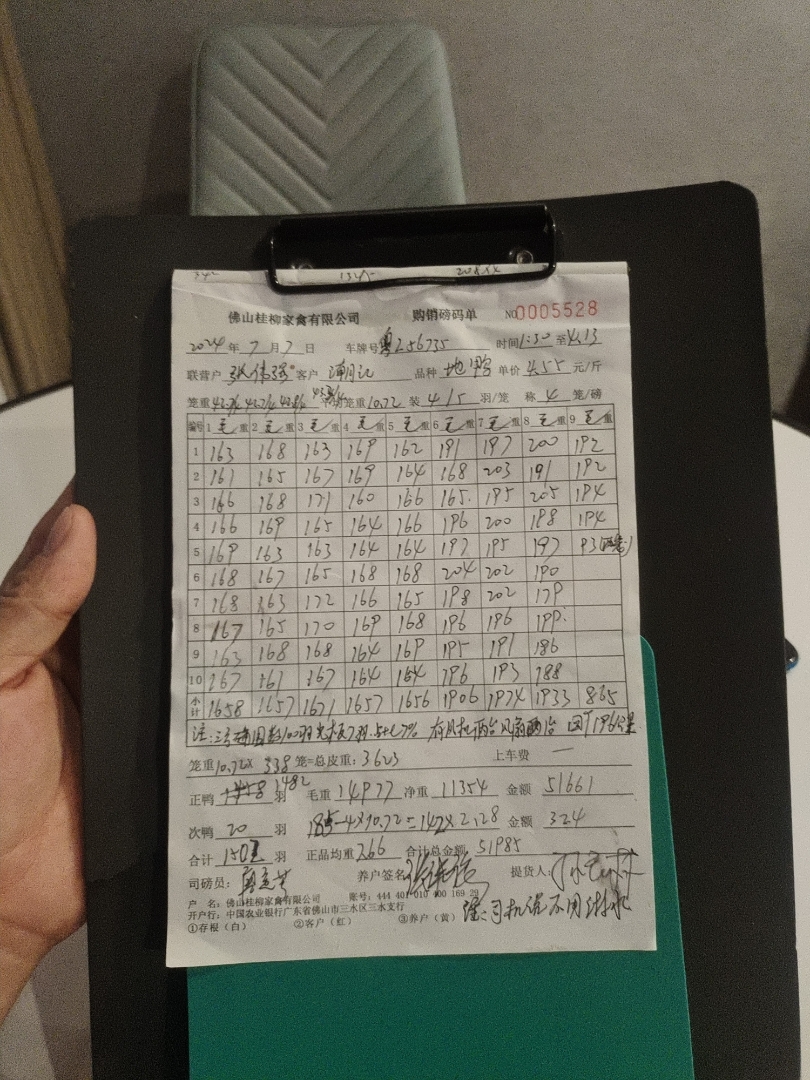 佛山桂柳家禽有限公司 购销磅码单 NO0005528
2024年7月7日 车牌号粤Z56735 时间1:30至4:13
联营户 张伟强 客户 潮记 品种 地鸭 单价 4.55 元/斤
笼重 平均笼重10.72 装4/5羽/笼 称4笼/磅
编号 1毛重 2毛重 3毛重 4毛重 5毛重 6毛重 7毛重 8毛重 9毛重
1 163 168 163 169 162 191 197 200 192
2 161 165 167 169 164 168 203 191 192
3 166 168 171 160 166 165 195 205 194
4 166 169 165 164 166 196 200 198 194
5 169 163 163 164 164 197 195 197 93
6 168 167 165 168 168 204 202 190
7 168 163 172 166 165 198 202 179
8 167 165 170 169 168 196 196 199
9 163 168 168 164 169 195 191 186
10 167 161 167 164 164 196 193 188
小计 1658 1657 1671 1657 1656 1906 1974 1933 865
注:
笼重10.72× 338 笼=总皮重: 3623 上车费 —
正鸭 1482 羽 毛重14977 净重 11354 金额 51661
次鸭 20 羽 185-4×10.72=142×2.28 金额 324
合计 1502 羽 正品均重7.66 合计总金额 51985
司磅员: 养户签名 提货人:
户 名:佛山桂柳家禽有限公司 账号:444 401 010 400 169 29
开户行:中国农业银行广东省佛山市三水区三水支行
①存根(白) ②客户(红) ③养户(黄)
司机说不用淋水